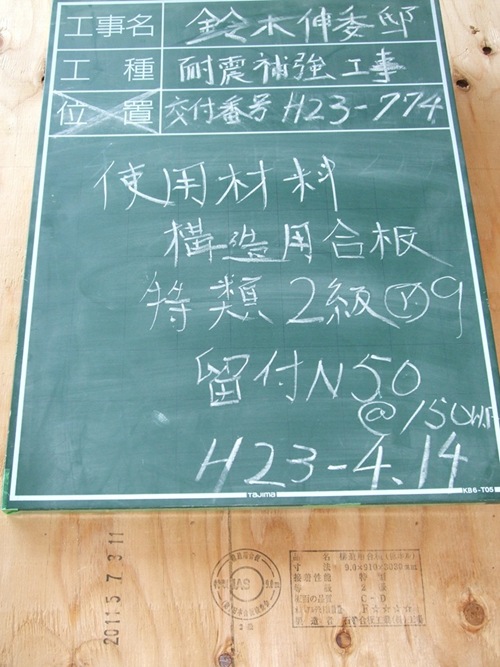 工事名 鈴木伸委邸
工種 耐震補強工事
位置 交付番号 H23-774
使用材料
構造用合板
特類2級 ㋐9
留付N50
@150以下
H23-4.14
Tajima
KB6-T05
2011.5.7 3 11
JAS
品名 構造用合板
寸法 9.0×910×3030mm
接着性能 特類
等級 2級
板面の品質 C-D
F☆☆☆☆
製造者